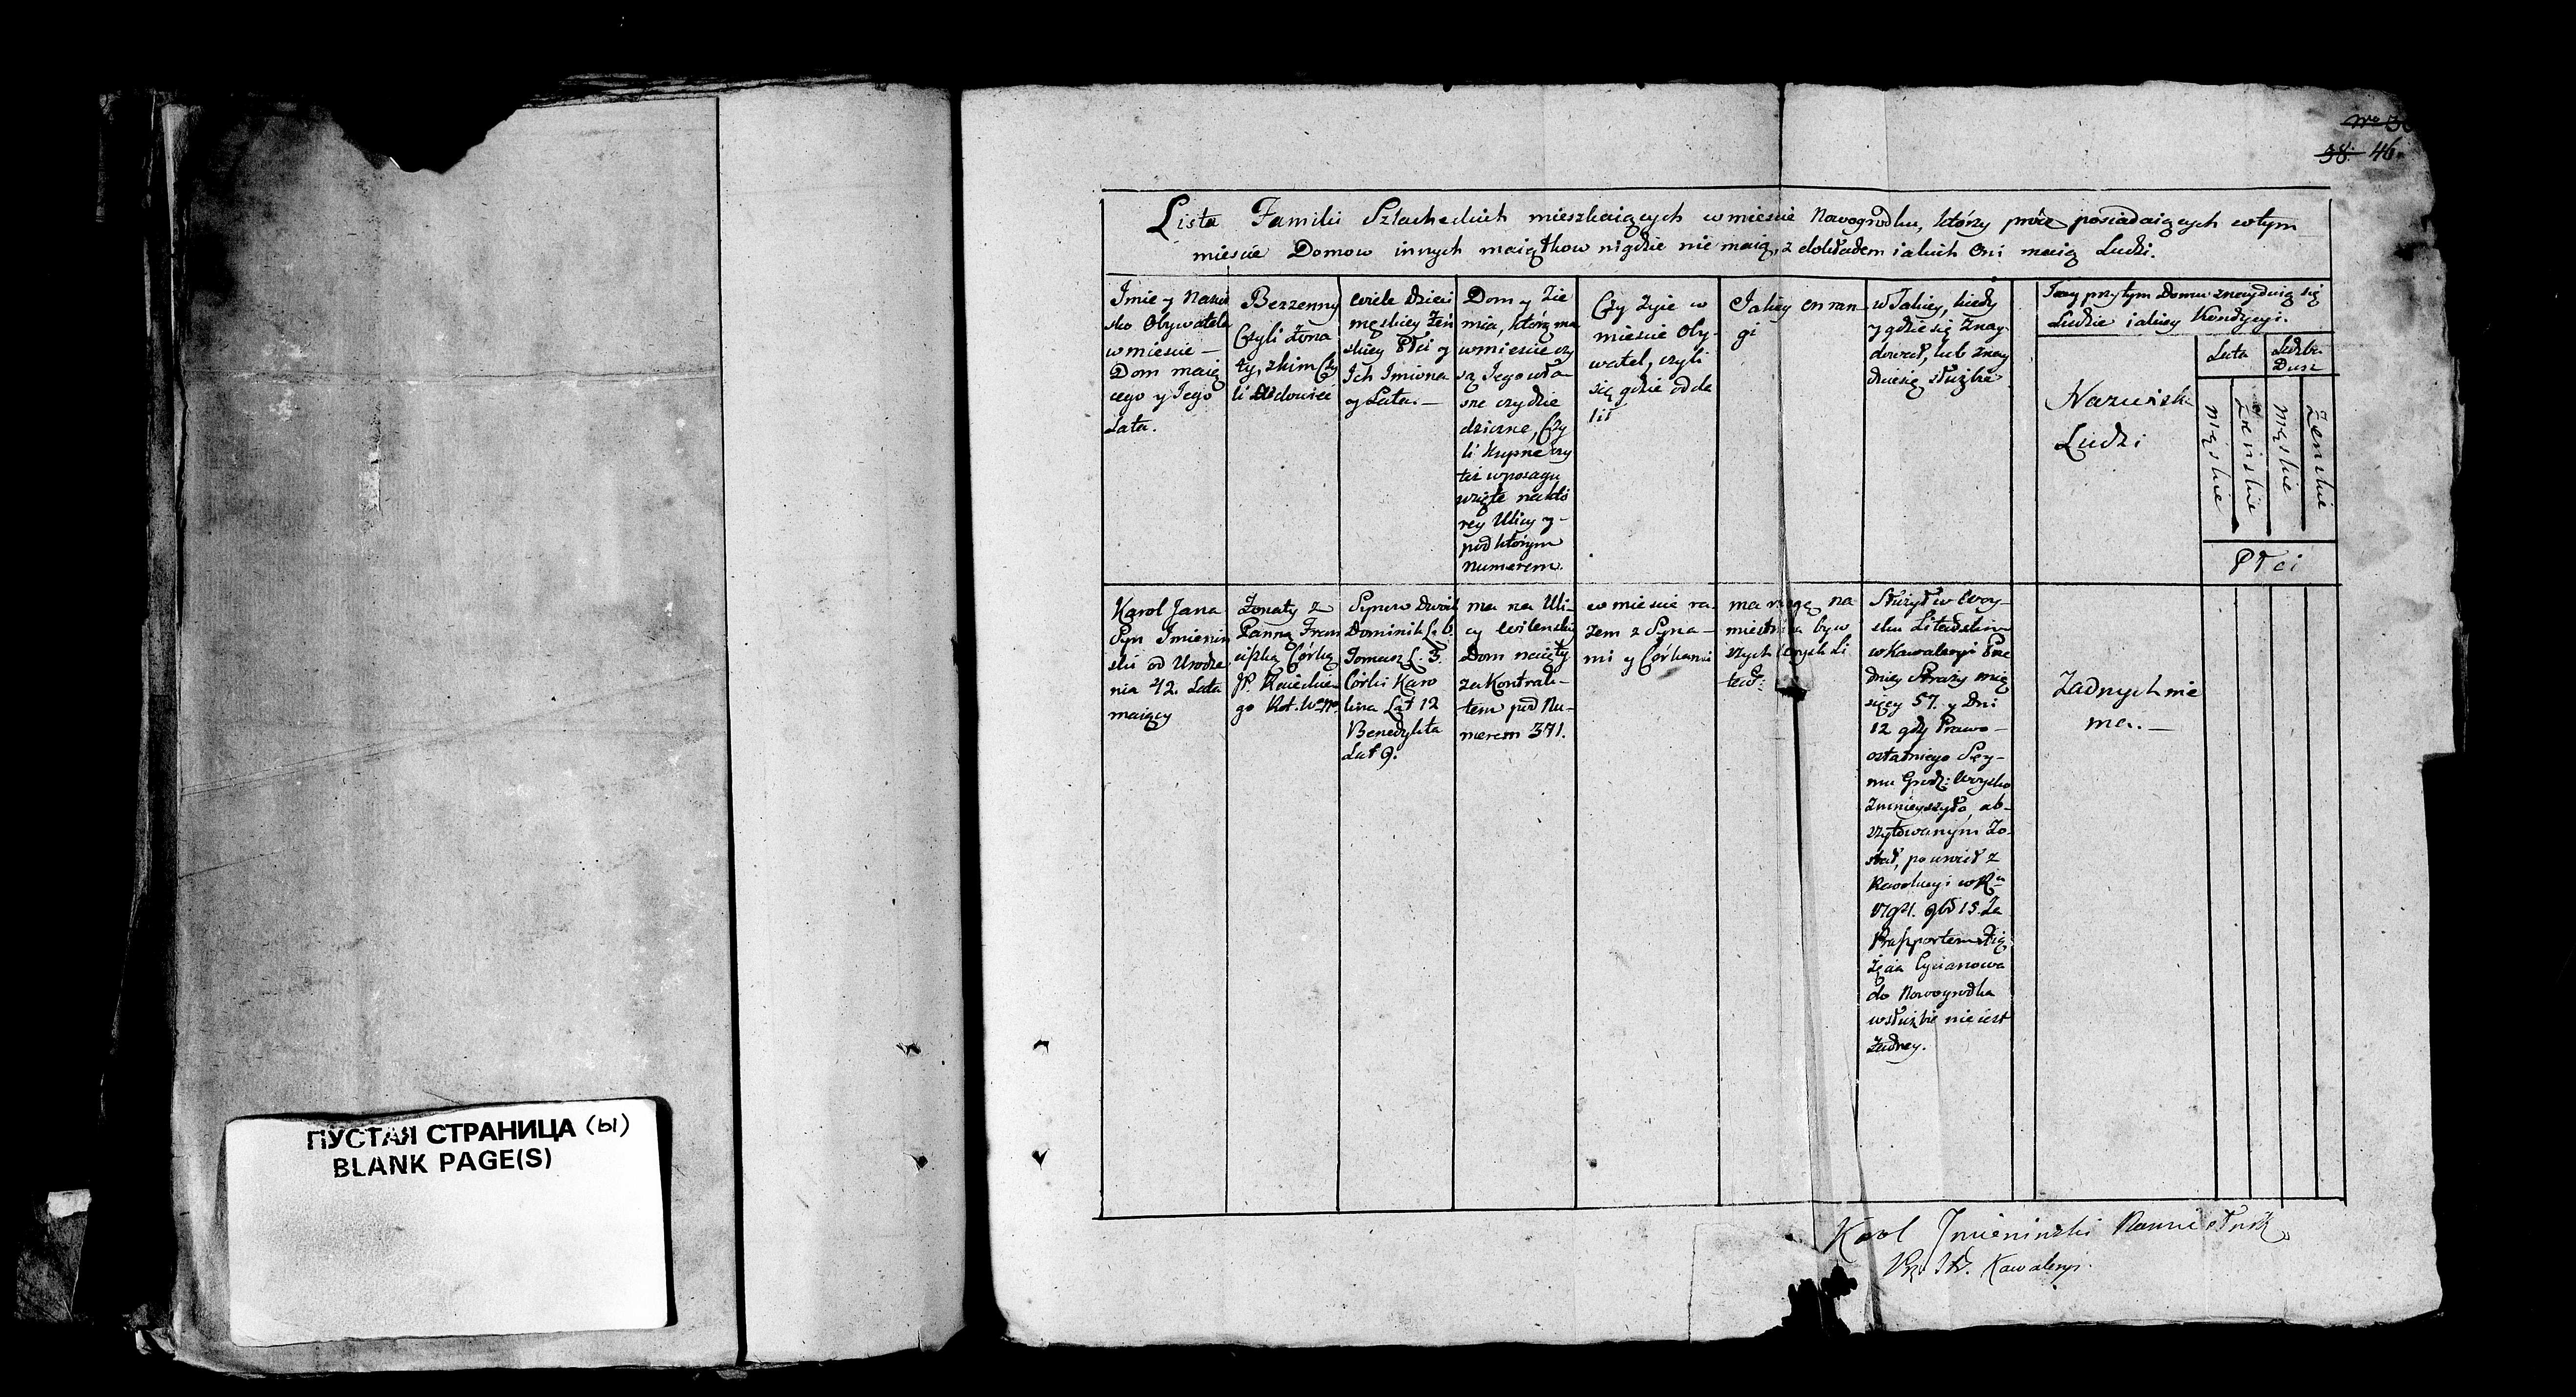 ПУСТАЯ СТРАНИЦА (ы)
BLANK PAGE(S)
38. 46.
Lista Familii Szlacheckich mieszkaiących w miescie Nowogrodku, którzy prócz posiadaiących w tym
miescie Domow innych maiątkow nigdzie nie maią, z dokładem iakich Oni maią Ludzi.
Imie y Nazwi
sko Obywatela
w miescie —
Dom maią
cego y Jego
Lata.
Bezzenny
Czyli Żona
ty, z kim Czy
li Wdowiec
Wiele dzieci
męskiey Żeń
skiey Płci y
Ich Imiona
y Lata. —
Dom y Zie
mia, którą ma
w miescie czy
są Jego wła-
sne czy dzie
dziczne, Czy
li Kupne czy
też w posagu
wzięte na któ
rey Ulicy y -
pod którym
Numerem
Czy żyie w
miescie Oby-
watel, czyli
się gdzie odda
lił
Jakiey on ran
gi
w Jakiey, kiedy
y gdzie się znay
dował, lub znay
duie się służbie
Tracy przy tym Domu znayduią się
Ludzie iakiey Kondycyi.
Nazwiska
Ludzi
Lata
Liczba
Dusz
męskie
Żeńskie
męskie
Żenskie
Płci
Karol Jana
Syn Imienin
ski od Urodze
nia 42. Lata
maiący
Żonaty z
Panną Fran
ciszką Córką
Synow dwóch
Dominik L. 6.
Tomasz L. 3.
Córki Karo
lina Lat 12
Benedykta
Lat 9.
ma na Uli-
cy Wilenskiey
Dom naięty
za Kontrak-
tem pod Nu-
merem 371.
w miescie ra-
zem z Syna-
mi y Córkami
ma rangę na
miestnika byw
szych woysk Li
tew:
Służył w Woy-
sku Litewskim
w Kawaleryi Prze
dniey Straży mie
sięcy 57. y Dni
12 gdy Prawo -
ostatniego Sey-
mu Grodz: Woysko
zmnieyszyło, ab-
szytowanym Zo-
stał, powrócił z
w R.u
1794. 9br 15. Za
Rapportem Xią
żęcia Cycianowa
do Nowogrodka
w służbie nie iest
żadney.
Żadnych nie
ma. —
Karol Imieninski Namiestnik
Kawaleryi